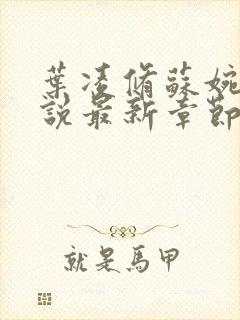 葉凌脩蘇婉
說最新章節
就是馬甲